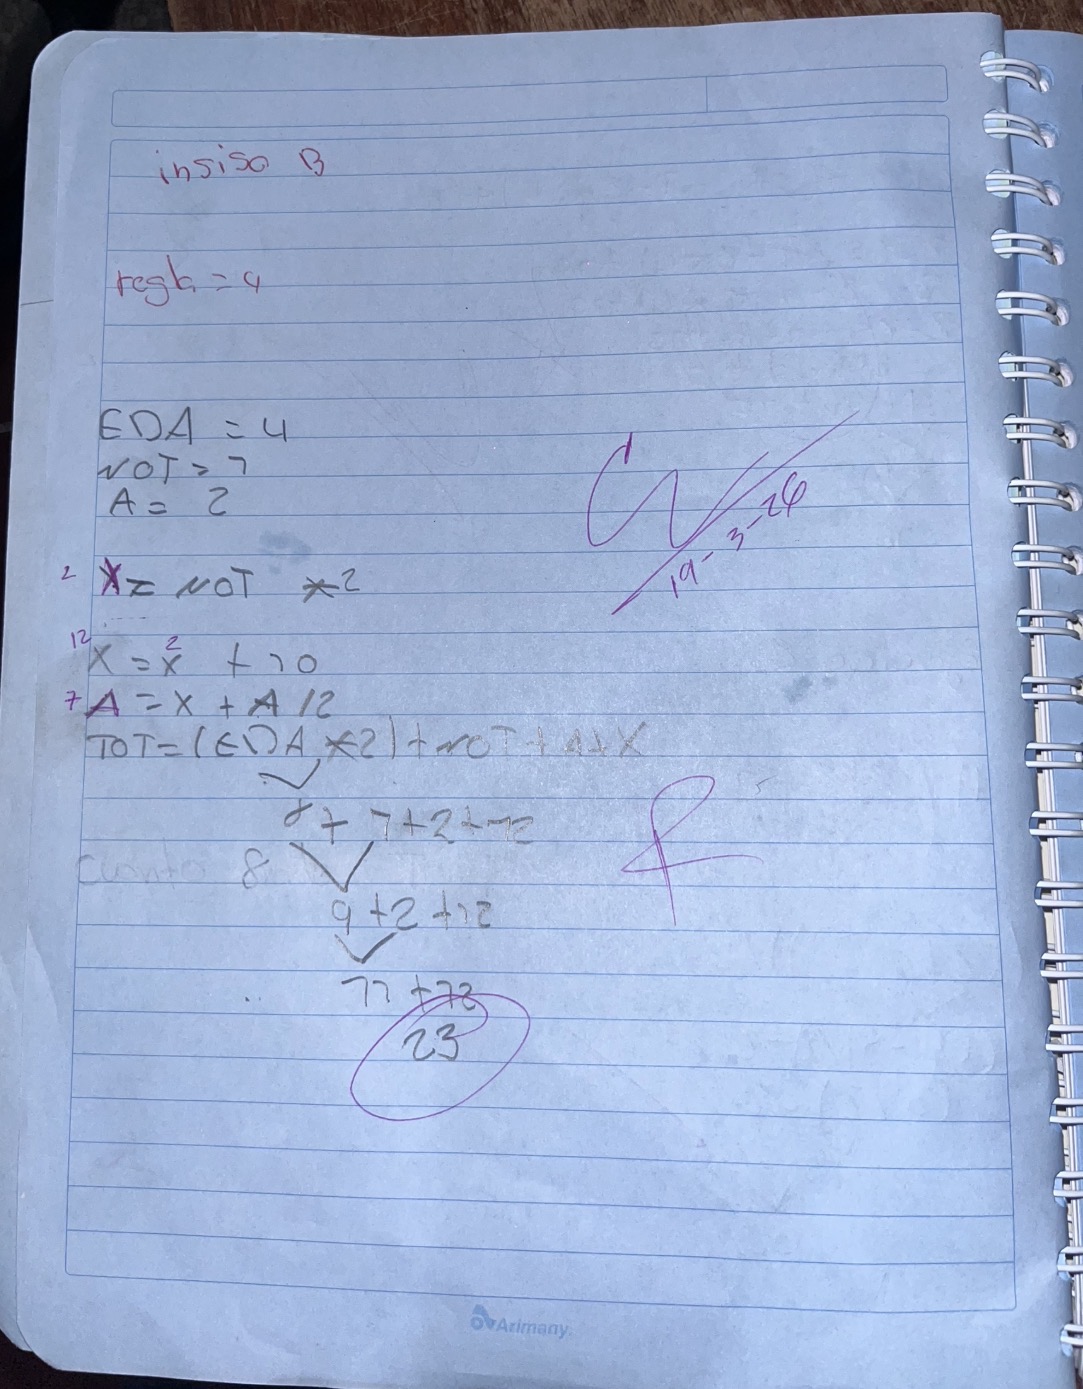 insiso B
regla = 4
EDA = 4
NOT = 7
A = 2
2 X = NOT *2
12 X = x 2 + 10
7 A = X + A 12
TOT = (EDA *2) + NOT + A + X
8 + 7 + 2 + 12
9 + 2 + 12
11 + 12
23
19-3-26
Arimany